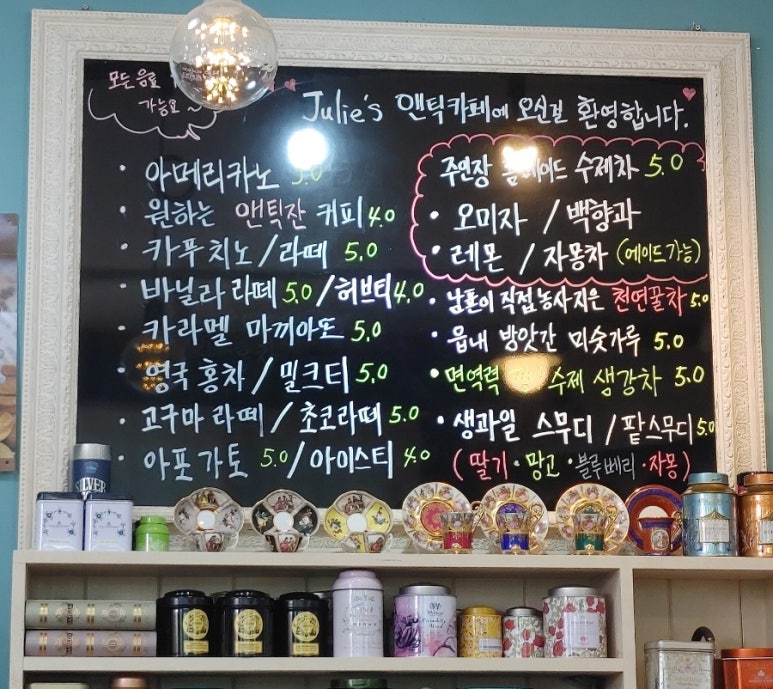 모든 음료
가능요~
Julie's 앤틱카페에 오신걸 환영합니다.
· 아메리카노 5.0
· 원하는 앤틱잔 커피 4.0
· 카푸치노/라떼 5.0
· 바닐라 라떼 5.0/허브티 4.0
· 카라멜 마끼아또 5.0
· 영국 홍차/밀크티 5.0
· 고구마 라떼/초코라떼 5.0
· 아포가토 5.0/아이스티 4.0
주인장 수제차 5.0
· 오미자 / 백향과
· 레몬 / 자몽차 (에이드 가능)
· 남편이 직접 농사지은 천연꿀차 5.0
· 읍내 방앗간 미숫가루 5.0
· 면역력 수제 생강차 5.0
· 생과일 스무디 / 팥스무디 5.0
(딸기·망고·블루베리·자몽)
SILVER